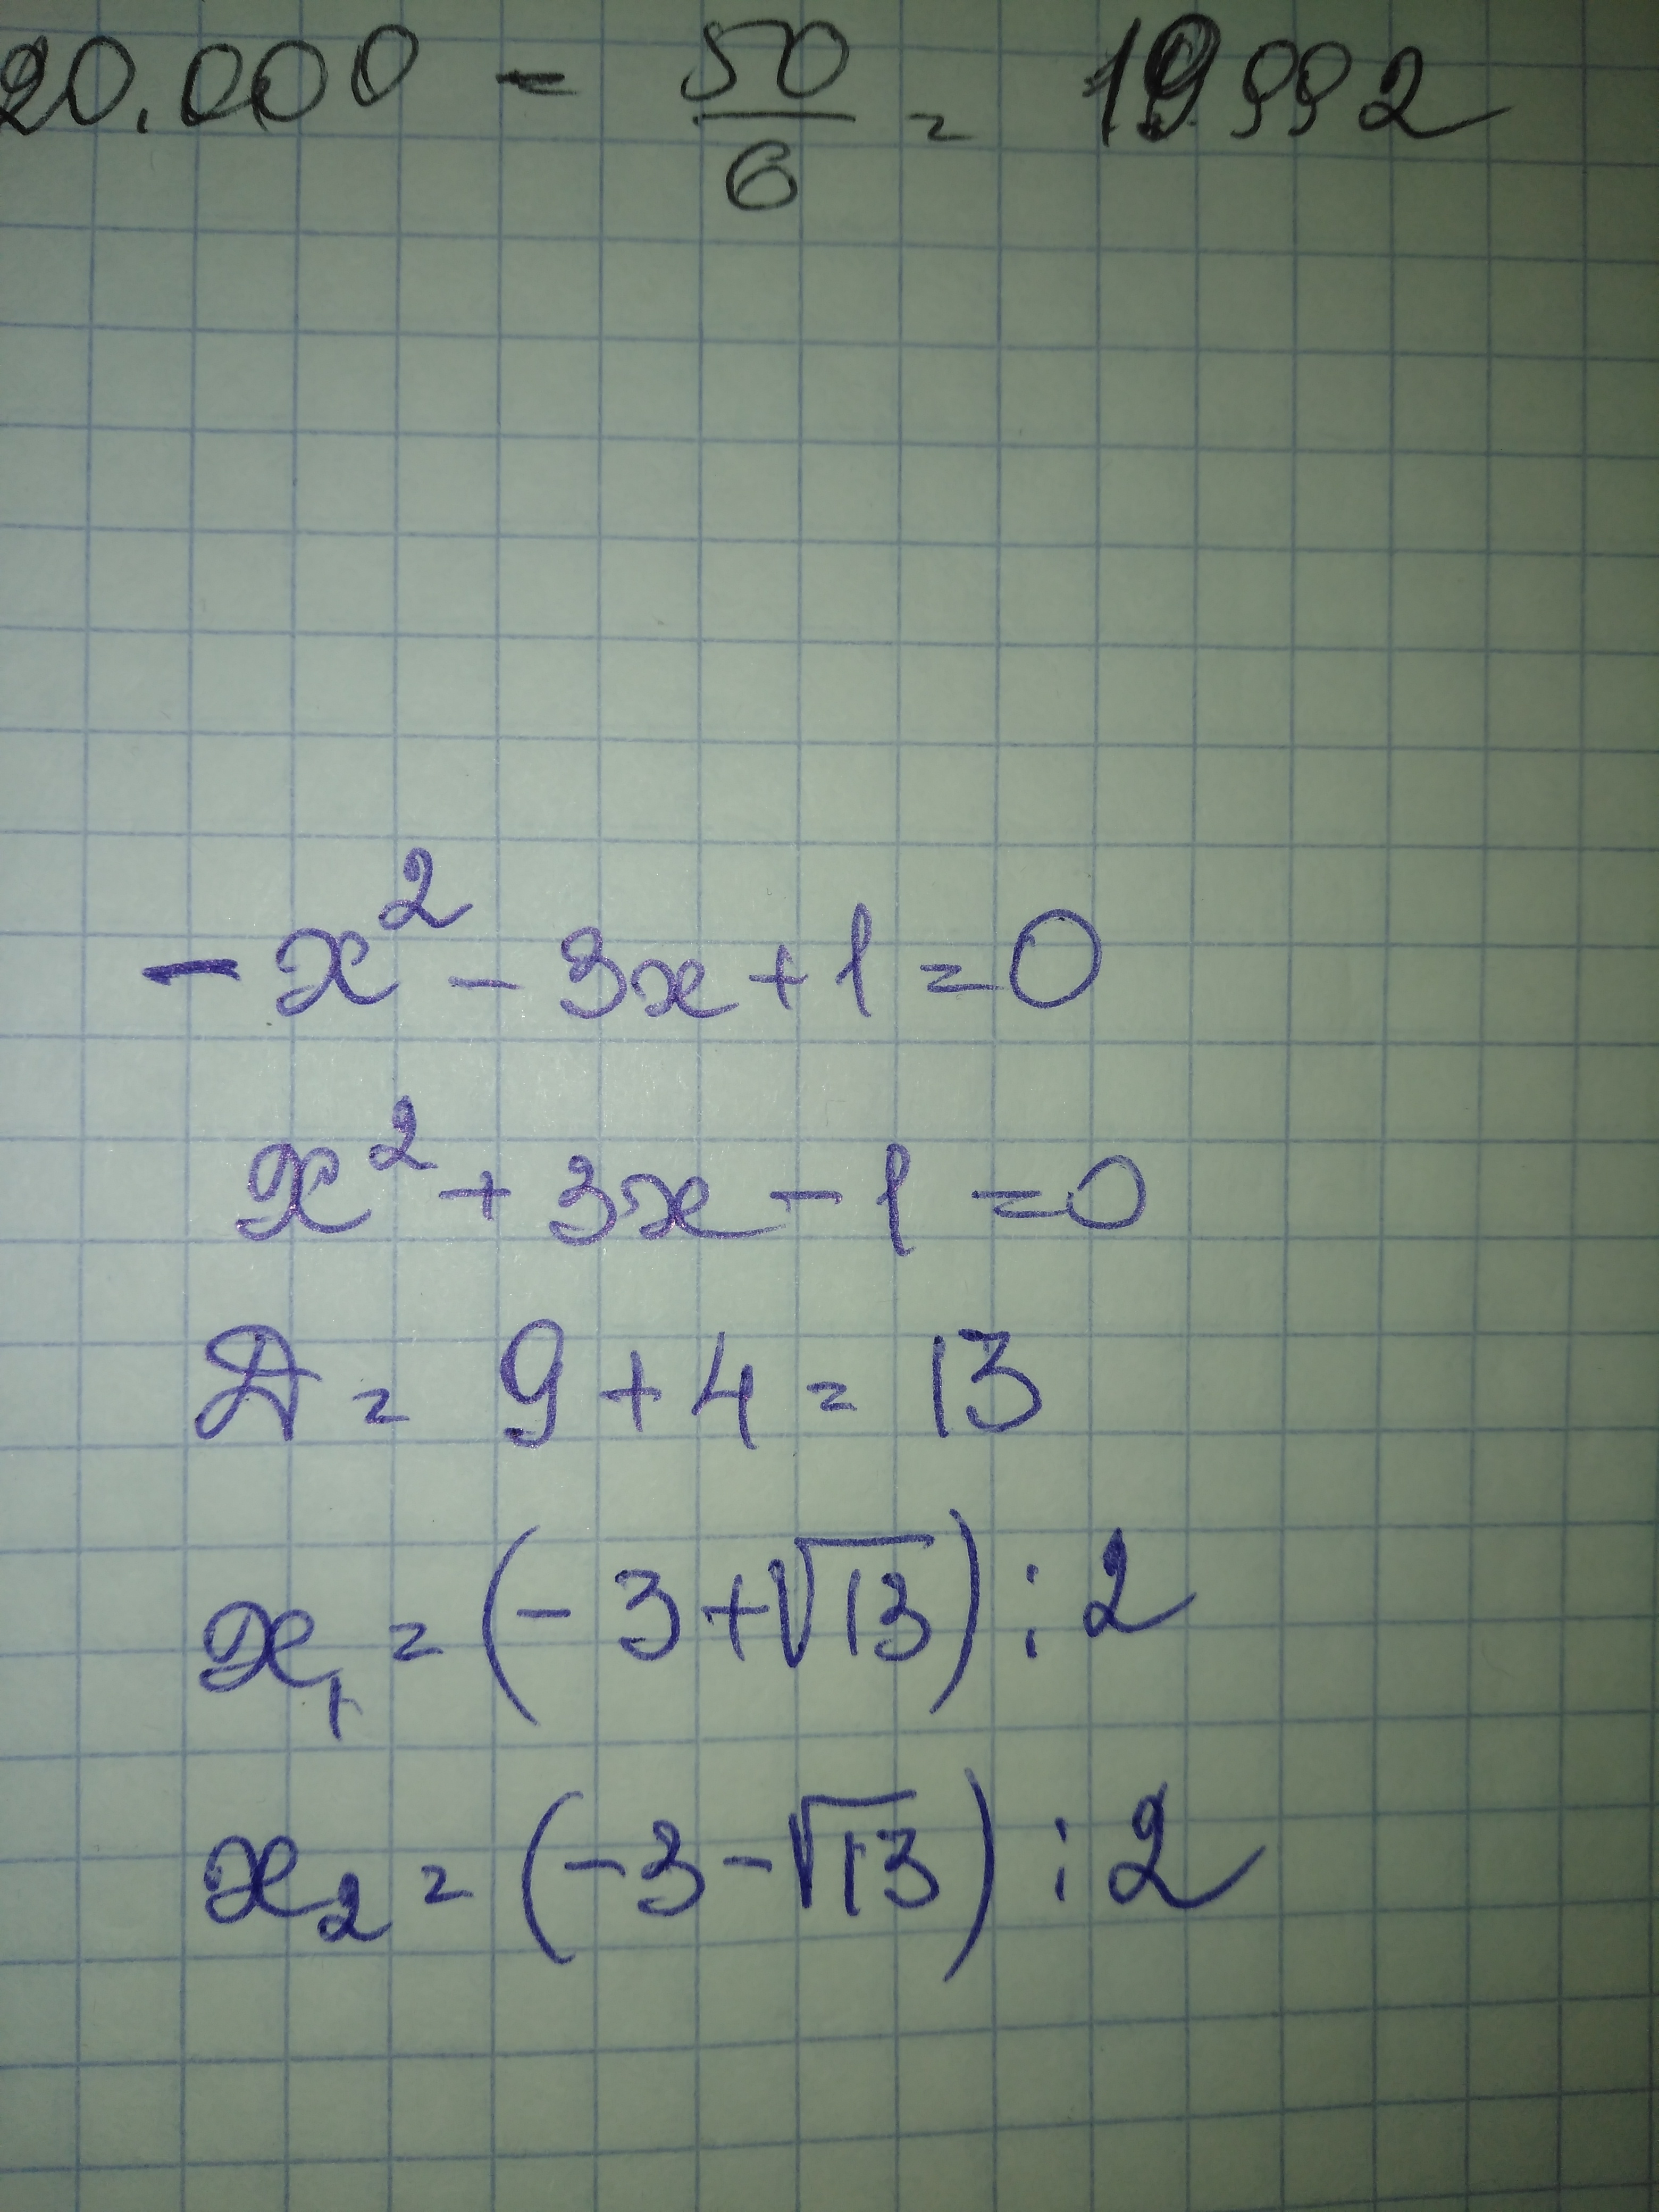 20.000 - 50/6 = 19992
-x² - 3x + 1 = 0
x² + 3x - 1 = 0
Д = 9 + 4 = 13
x₁ = (-3 + √13) : 2
x₂ = (-3 - √13) : 2